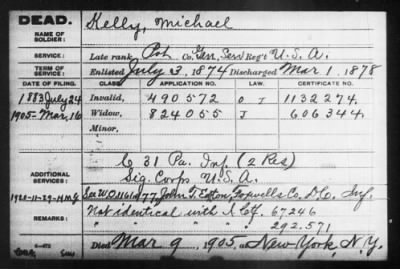 DEAD.
NAME OF SOLDIER: Kelly, Michael
SERVICE: Late rank Pvt Co. Gen. Serv Reg't U. S. A.
TERM OF SERVICE: Enlisted July 3, 1874 Discharged Mar 1, 1878
DATE OF FILING. CLASS. APPLICATION NO. LAW. CERTIFICATE NO.
1883 July 24 Invalid, 490572 O J 1132274
1905-Mar, 16 Widow, 824055 J 606344
Minor,
ADDITIONAL SERVICES: C 31 Pa. Inf (2 Res)
Sig. Corps U. S. A.
See W.O. John T. Eaton, Co. D Inf.
REMARKS: Not identical with I. Ctf. 67246
" " " " 292.571
Died Mar 9, 1905, at New York, N.Y.